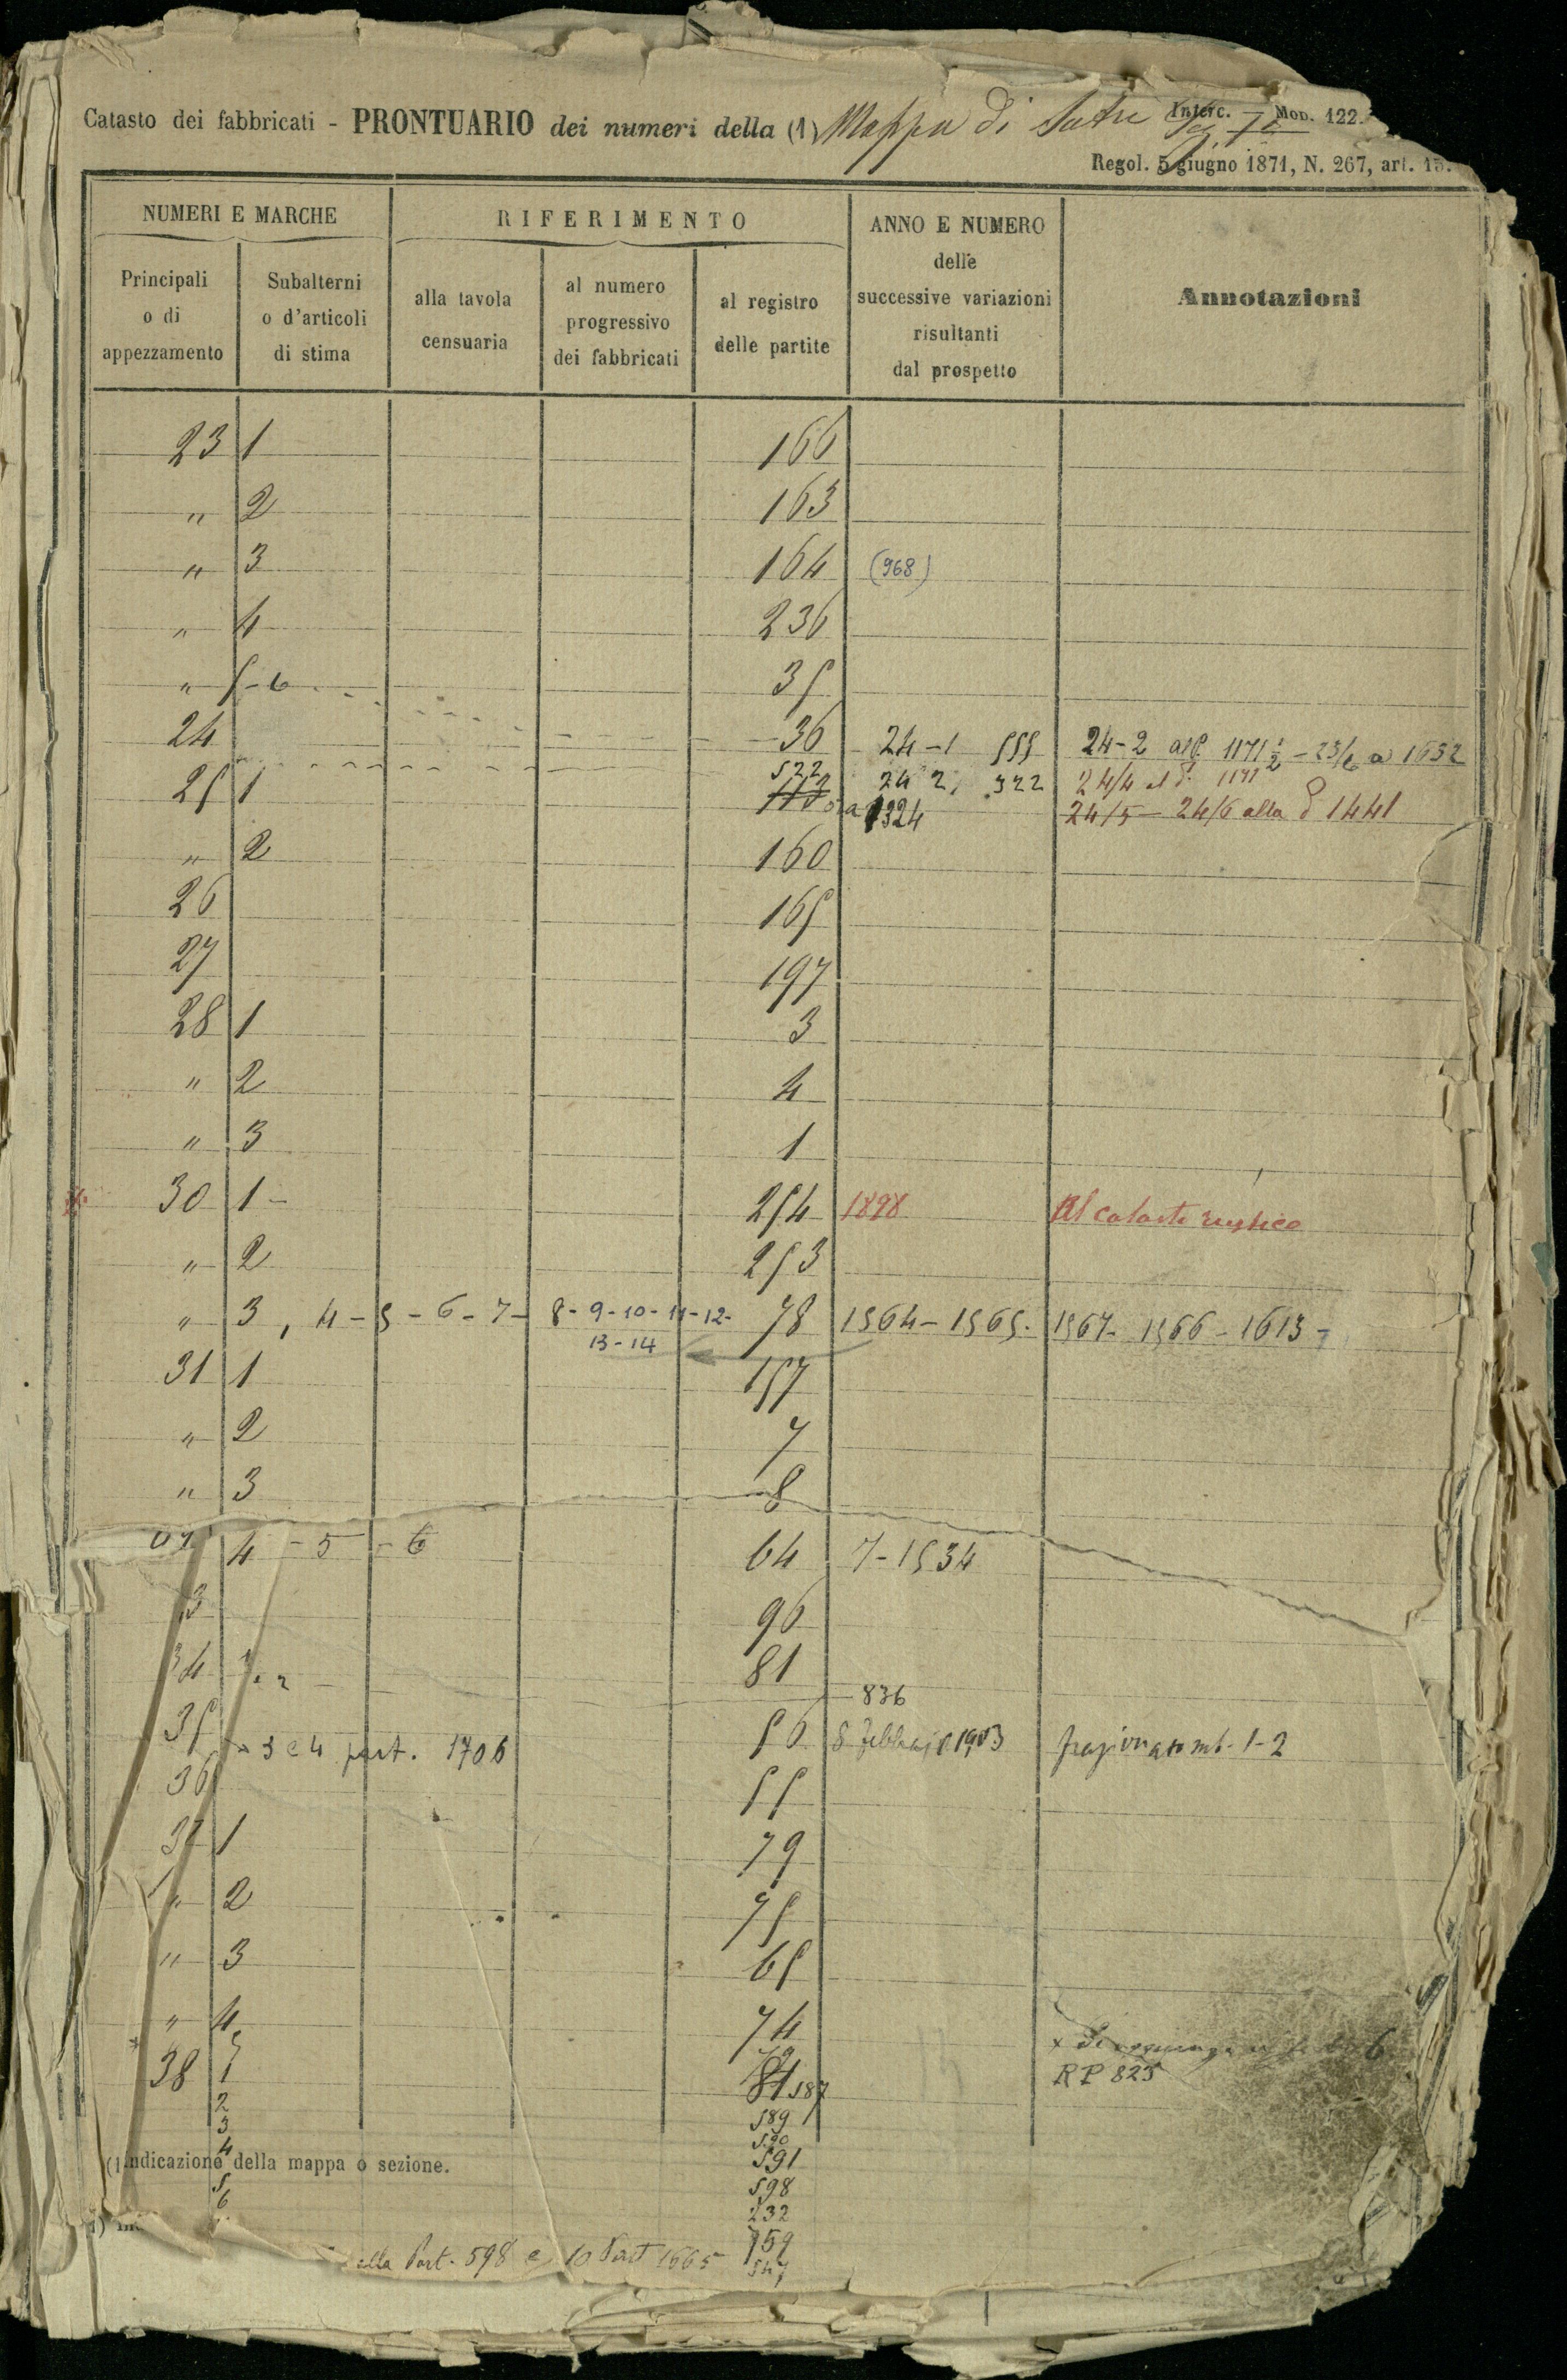 Catasto dei fabbricati - PRONTUARIO dei numeri della (1) Mappa di Sutri
Interc. Mod. 122.
Regol. 5 giugno 1871, N. 267, art. 15.
NUMERI E MARCHE RIFERIMENTO ANNO E NUMERO delle successive variazioni risultanti dal prospetto Annotazioni
Principali o di appezzamento Subalterni o d'articoli di stima alla tavola censuaria al numero progressivo dei fabbricati al registro delle partite
23 1 166
" 2 163
" 3 164 (968)
" 4 236
" 5-6 35
24 36 24-1 555 24-2 1171 1/2 - 23/6 a 1632
522 24 2, 322 24/4 1171
25 1 113 ora 1324 24/5 - 24/6 alla 1441
" 2 160
26 165
27 197
28 1 3
" 2 4
" 3 1
30 1 - 254 1898 Al catasto rustico
" 2 253
" 3, 4-5-6-7-8-9-10-11-12- 78 1564-1565- 1567- 1566-1613-
13-14
31 1 157
" 2 7
" 3 8
4 - 5 - 6 64 7-1534
3 96
34 1. 2 81
836
35 56 8 febbraio 1903 frazionato 1-2
3 e 4 part. 1706
36 55
37 1 79
" 2 75
" 3 65
" 4 74
5
× 6
38 1 81 587 RP 825
2 589
3 590
4 591
(1) Indicazione della mappa o sezione.
5 598
6 232
959
alla Part. 598 e 10 Part 1665 547